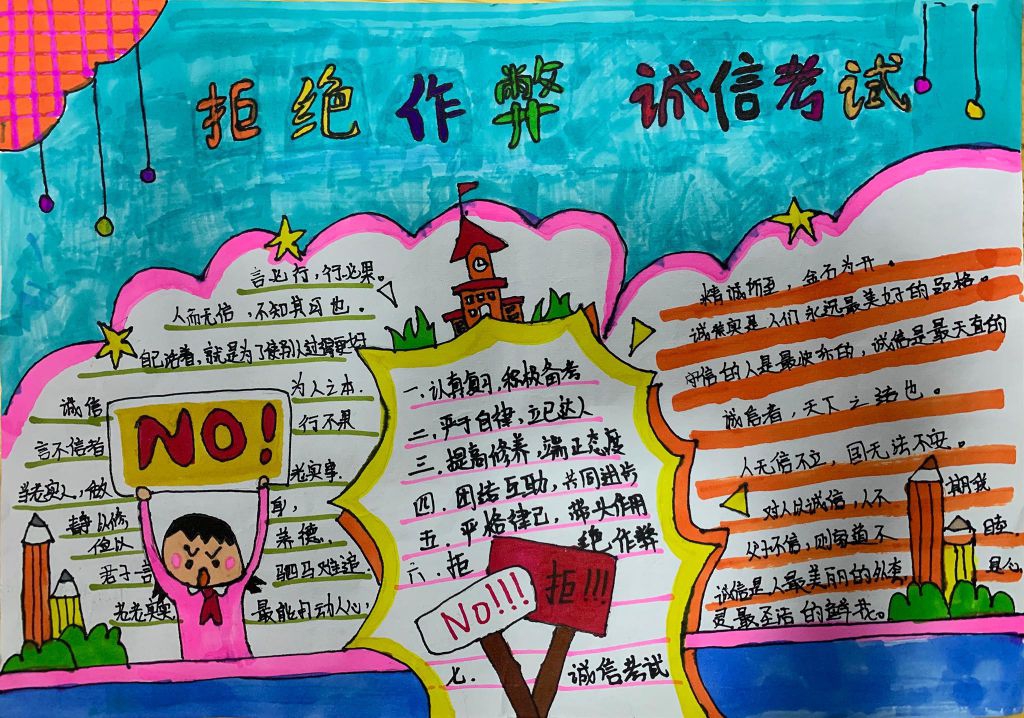 拒绝作弊 诚信考试
言必行，行必果。
人而无信，不知其可也。
自己活着，就是为了使别人过得更好
诚信 为人之本.
NO!
言不信者 行不果
当老实人，做 老实事.
静以修 身,
俭以 养德.
君子一言 驷马难追
老老实实 最能打动人心,
一.认真复习,积极备考
二.严于自律,立己达人
三.提高修养,端正态度
四.团结互助,共同进步
五.严格律己,带头作用
六.拒 绝作弊
拒!!!
NO!!!
七. 诚信考试
精诚所至，金石为开。
诚实是人们永远最美好的品格。
守信的人是最快乐的，诚信是最天真的
诚信者，天下之结也。
人无信不立，国无法不安。
对人以诚信，人不 期我
父子不信，则家道不 睦.
诚信是人最美丽的外套 是心
灵最圣洁的鲜花。